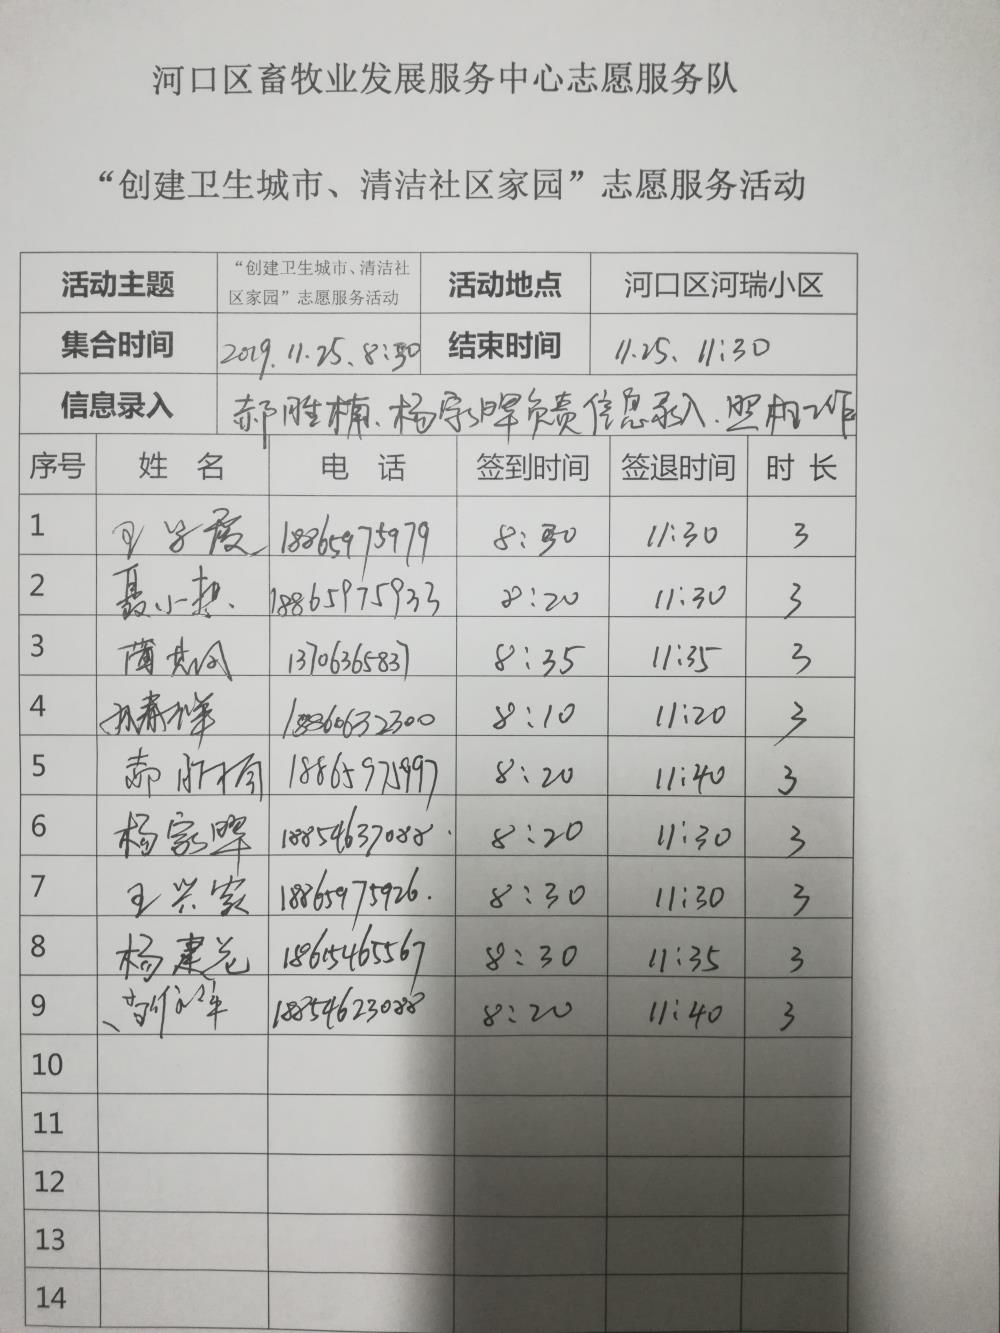 河口区畜牧业发展服务中心志愿服务队
“创建卫生城市、清洁社区家园”志愿服务活动
活动主题 “创建卫生城市、清洁社区家园”志愿服务活动 活动地点 河口区河瑞小区
集合时间 2019.11.25、8:30 结束时间 11.25、11:30
信息录入 郝胜楠、杨家晖负责信息录入、照相工作
序号 姓名 电话 签到时间 签退时间 时长
1 王学霞 18865975979 8:30 11:30 3
2 聂小 18865975933 8:20 11:30 3
3 13706365837 8:35 11:35 3
4 孙春祥 18860632300 8:10 11:20 3
5 郝胜楠 18865975997 8:20 11:40 3
6 杨家晖 18854637088 8:20 11:30 3
7 王兴家 18865975926. 8:30 11:30 3
8 杨建 18615465567 8:30 11:35 3
9 18854623088 8:20 11:40 3
10
11
12
13
14